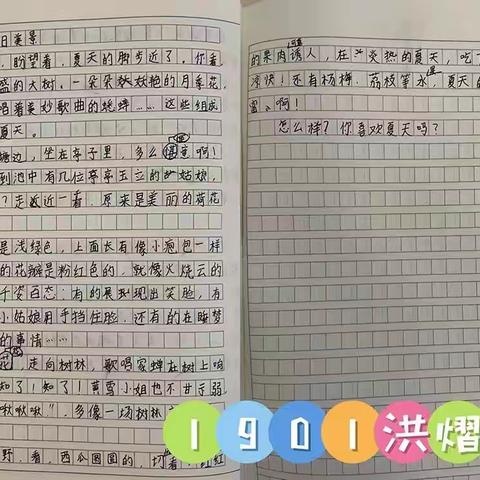 日美景
，盼望着，夏天的脚步近了，你看
盛的大树、一朵朵妖艳的月季花，
唱着美妙歌曲的蟋蟀……这些组成
夏天。
塘边，坐在亭子里，多么惬意啊！
到池中有几位亭亭玉立的姑娘，
？走近一看，原来是美丽的荷花
是浅绿色，上面长有像小疱包一样
的花瓣是粉红色的，就像火烧云的
千姿百态：有的展现出笑脸，有
小姑娘用手挡住脸，还有的在睡梦
的事情……
，走向树林，歌唱家蝉在树上响
知了！知了！黄莺小姐也不甘示弱
啾啾啾"，多像一场树林
野，看，西瓜圆圆的，切看，红红
的果肉诱人，在炎热的夏天，吃了
凉快！还有杨梅、荔枝等水，夏天的
富。啊！
怎么样？你喜欢夏天吗？
1901洪熠